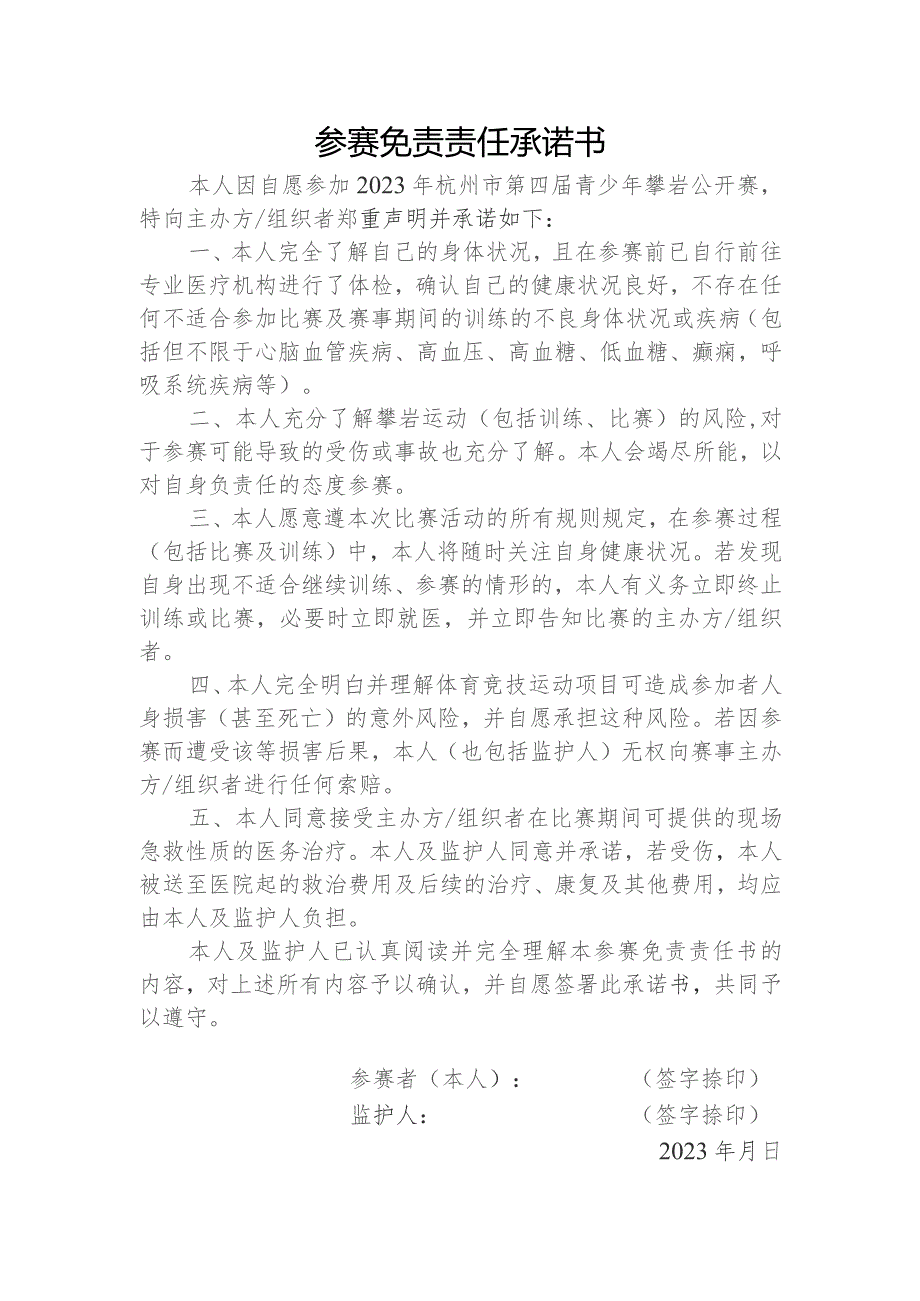 参赛免责责任承诺书
本人因自愿参加2023年杭州市第四届青少年攀岩公开赛，
特向主办方/组织者郑重声明并承诺如下：
一、本人完全了解自己的身体状况，且在参赛前已自行前往
专业医疗机构进行了体检，确认自己的健康状况良好，不存在任
何不适合参加比赛及赛事期间的训练的不良身体状况或疾病（包
括但不限于心脑血管疾病、高血压、高血糖、低血糖、癫痫，呼
吸系统疾病等）。
二、本人充分了解攀岩运动（包括训练、比赛）的风险,对
于参赛可能导致的受伤或事故也充分了解。本人会竭尽所能，以
对自身负责任的态度参赛。
三、本人愿意遵本次比赛活动的所有规则规定，在参赛过程
（包括比赛及训练）中，本人将随时关注自身健康状况。若发现
自身出现不适合继续训练、参赛的情形的，本人有义务立即终止
训练或比赛，必要时立即就医，并立即告知比赛的主办方/组织
者。
四、本人完全明白并理解体育竞技运动项目可造成参加者人
身损害（甚至死亡）的意外风险，并自愿承担这种风险。若因参
赛而遭受该等损害后果，本人（也包括监护人）无权向赛事主办
方/组织者进行任何索赔。
五、本人同意接受主办方/组织者在比赛期间可提供的现场
急救性质的医务治疗。本人及监护人同意并承诺，若受伤，本人
被送至医院起的救治费用及后续的治疗、康复及其他费用，均应
由本人及监护人负担。
本人及监护人已认真阅读并完全理解本参赛免责责任书的
内容，对上述所有内容予以确认，并自愿签署此承诺书，共同予
以遵守。
参赛者（本人）： （签字捺印）
监护人： （签字捺印）
2023年月日